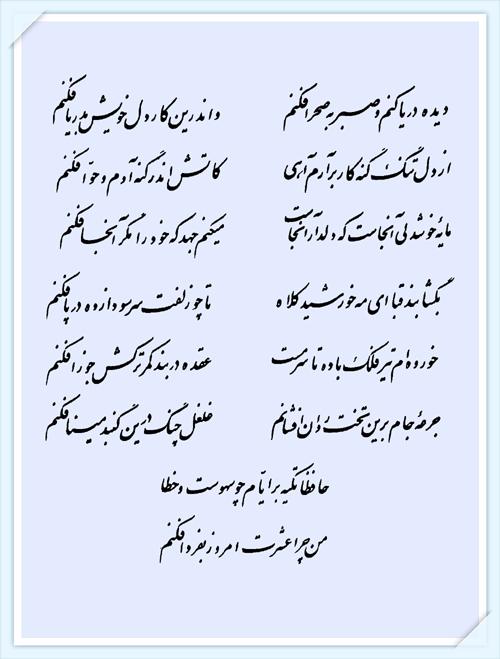 دیده دریا کنم و صبر به صحرا فکنم    واندرین کار دل خویش به دریا فکنم
از دل تنگ گنه کار برآرم آهی    کاتش اندر گنه آدم و حوا فکنم
مایهٔ خوشدلی آنجاست که دلدار آنجاست    میکنم جهد که خود را مگر آنجا فکنم
بگشا بند قبا ای مه خورشید کلاه    تا چو زلفت سر سودازده در پا فکنم
خورده‌ام تیر فلک باده ده تا سرمست    عقده در بند کمر ترکش جوزا فکنم
جرعهٔ جام برین تخت روان افشانم    غلغل چنگ درین گنبد مینا فکنم
حافظا تکیه بر ایام چو سهوست و خطا
من چرا عشرت امروز بفردا فکنم